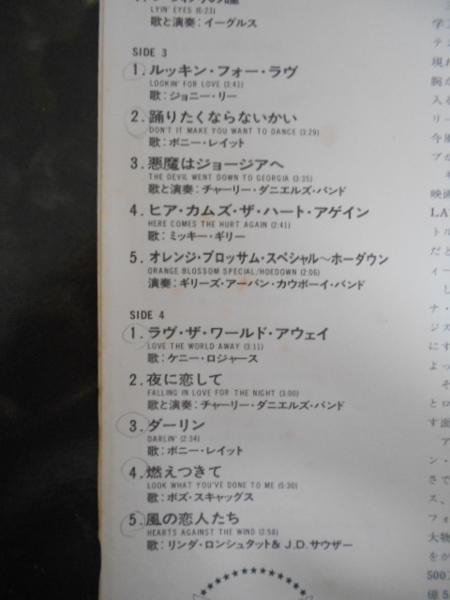 LYIN' EYES (6:23)
歌と演奏：イーグルス
SIDE 3
1. ルッキン・フォー・ラヴ
LOOKIN' FOR LOVE (3:41)
歌：ジョニー・リー
2. 踊りたくならないかい
DON'T IT MAKE YOU WANT TO DANCE (3:29)
歌：ボニー・レイット
3. 悪魔はジョージアへ
THE DEVIL WENT DOWN TO GEORGIA (3:35)
歌と演奏：チャーリー・ダニエルズ・バンド
4. ヒア・カムズ・ザ・ハート・アゲイン
HERE COMES THE HURT AGAIN (2:41)
歌：ミッキー・ギリー
5. オレンジ・ブロッサム・スペシャル〜ホーダウン
ORANGE BLOSSOM SPECIAL/HOEDOWN (2:06)
演奏：ギリーズ・アーバン・カウボーイ・バンド
SIDE 4
1. ラヴ・ザ・ワールド・アウェイ
LOVE THE WORLD AWAY (3:11)
歌：ケニー・ロジャース
2. 夜に恋して
FALLING IN LOVE FOR THE NIGHT (3:00)
歌と演奏：チャーリー・ダニエルズ・バンド
3. ダーリン
DARLIN' (2:34)
歌：ボニー・レイット
4. 燃えつきて
LOOK WHAT YOU'VE DONE TO ME (5:30)
歌：ボズ・スキャッグス
5. 風の恋人たち
HEARTS AGAINST THE WIND (2:58)
歌：リンダ・ロンシュタット& J.D.サウザー